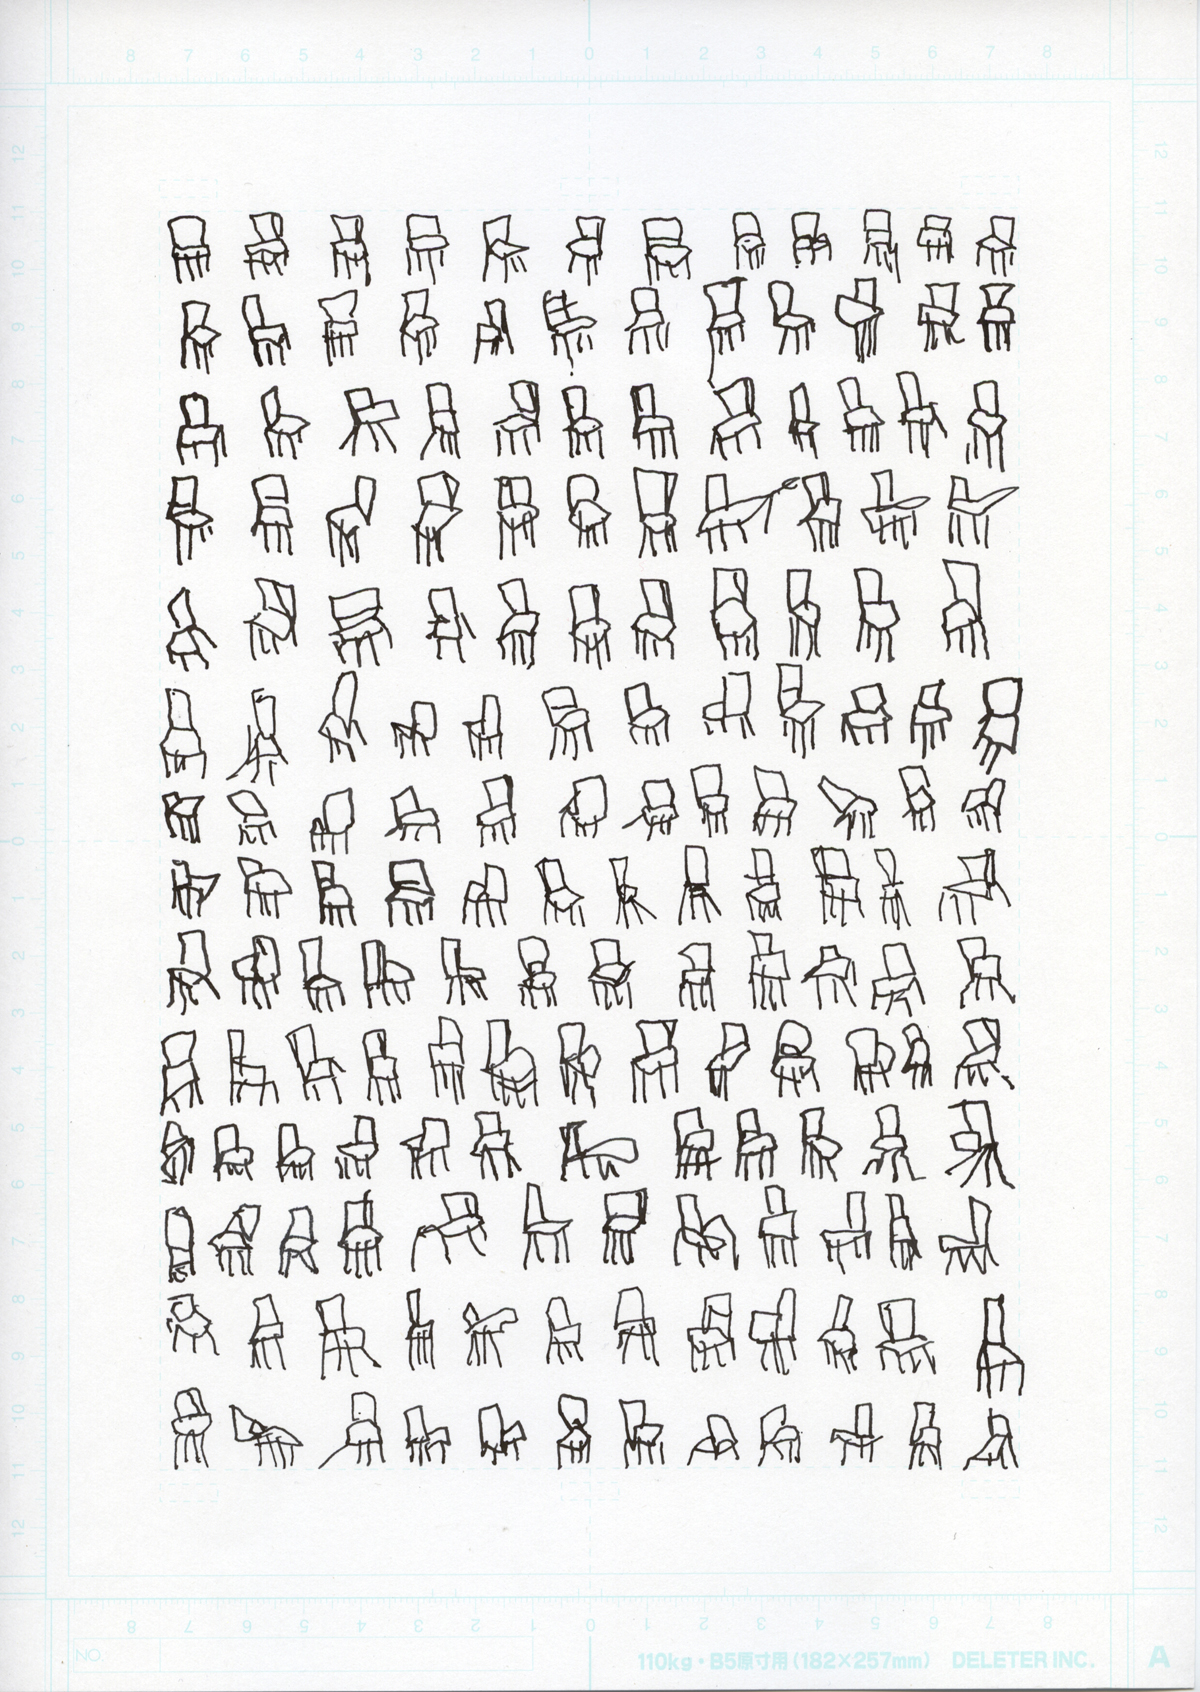 8 7 6 5 4 3 2 1 0 1 2 3 4 5 6 7 8
12 11 10 9 8 7 6 5 4 3 2 1 0 1 2 3 4 5 6 7 8 9 10 11 12
12 11 10 9 8 7 6 5 4 3 2 1 0 1 2 3 4 5 6 7 8 9 10 11 12
8 7 6 5 4 3 2 1 0 1 2 3 4 5 6 7 8
NO.
110kg・B5原寸用(182×257mm) DELETER INC. A